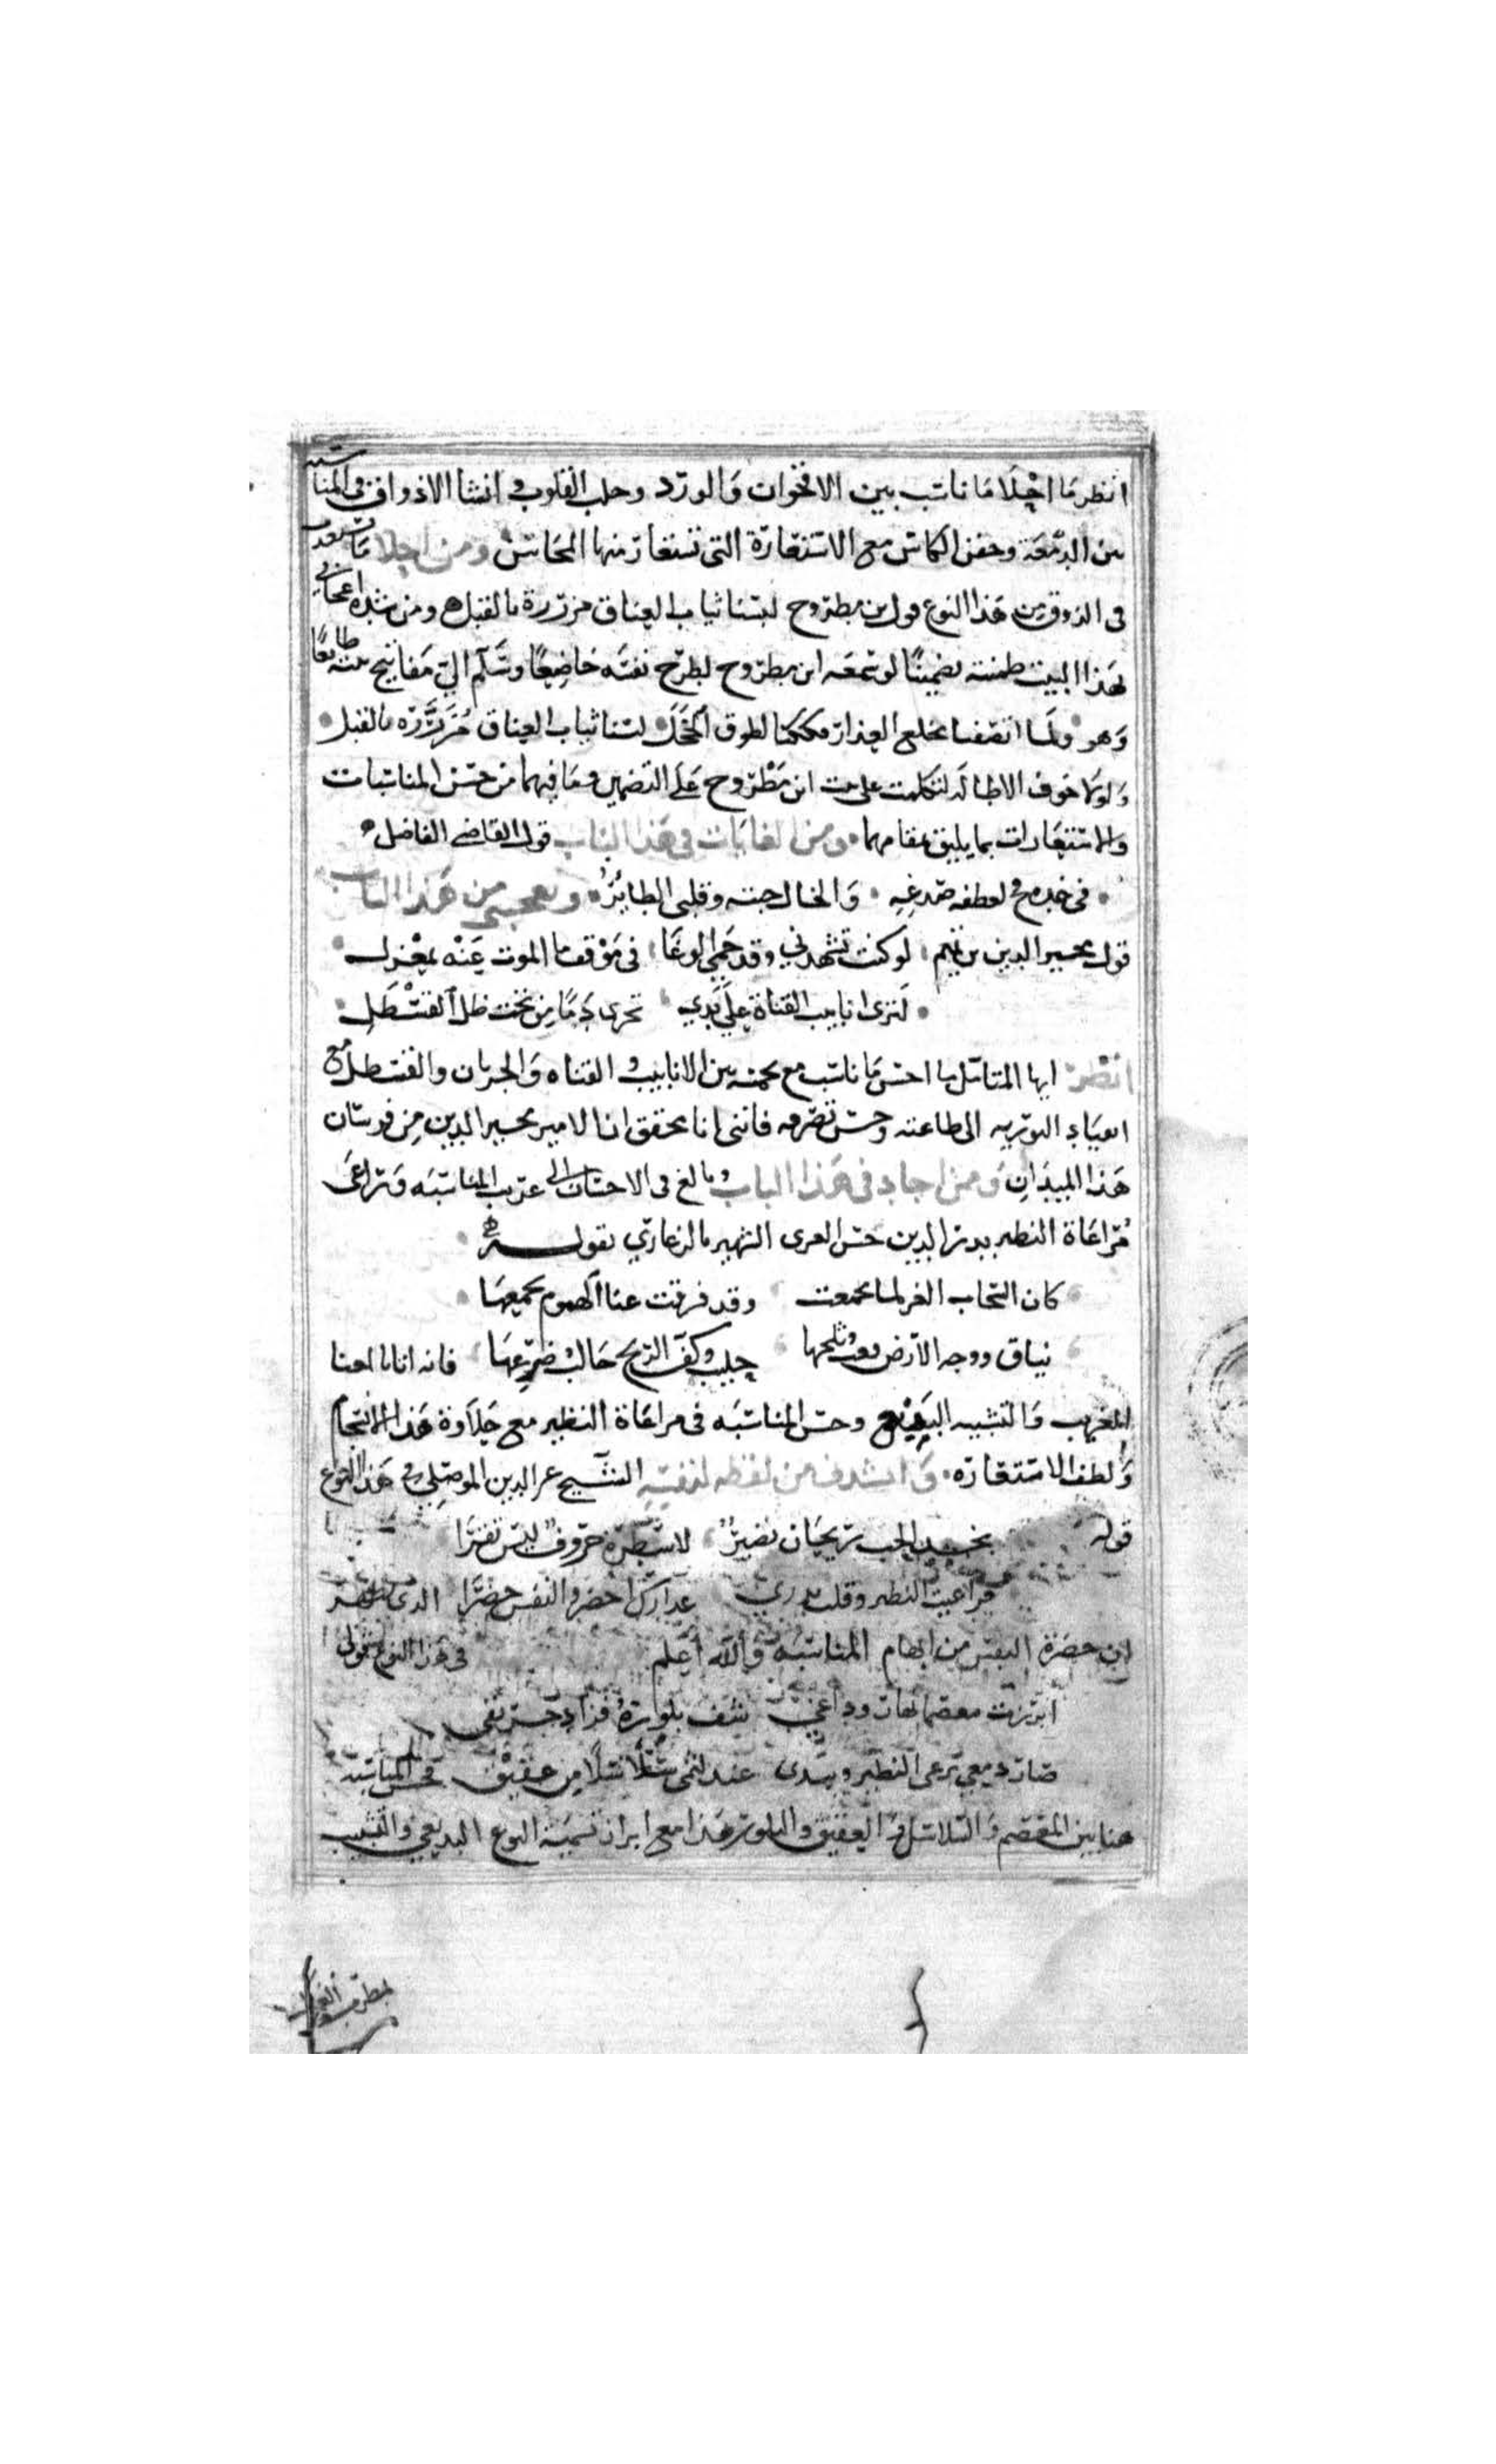 انظر ما احلا ما ناسب بين الاقحوان والورد وجلب القلوب في انشا الاذواق في المناسبة
بين الدمعة وجفن الكاس مع الاستعارة التي تستعار منها المحاسن ومن احلا ما يستعذب
في الذوق من هذا النوع قول بن مطروح لبسنا ثياب العناق مزررة بالقبل ومن شدة اعجابي
بهذا البيت ضمنته تضمينا لو سمعه ابن مطروح لطرح نفسه خاضعا وسلم الي مفاتيح بيته طايعا
وهو ولما اتصفنا بخلع العذار فككنا لطوق الخجل لبسنا ثياب العناق مزررة بالقبل
ولولا خوف الاطالة لتكلمت على بيت ابن مطروح على التضمين وما فيهما من حسن المناسبات
والاستعارات بما يليق بمقامهما ومن الغايات في هذا الباب قول القاضي الفاضل
في خده فخ لعطفة صدغه والخال حبته وقلبي الطاير ويعجبني من هذا الباب
قول مجير الدين بن تميم لو كنت تشهدني وقد حمي الوغا في موقف ما الموت عنه بمعزل
لترى انابيب القناة على يدي تجري دما من تحت ظل القسطل
انظر ايها المتامل ما احسن ما ناسب مع بين الانابيب والقناه والجريان والقسطل مع
انقياد التوريه الى طاعته وحسن تصرفه فانني انا محقق ان الامير مجير الدين من فرسان
هذا الميدان وممن اجاد في هذا الباب وبالغ في الاحسان الى غريب المناسبه وتراعى
مراعاة النظير بدر الدين حسن الغزي الشهير بالزغاري بقوله
كان السحاب الغر لما تجمعت وقد فرقت عنا الهموم بجمعها
نياق ووجه الارض قعب وثلجها حليب وكف الريح حالب ضرعها فانه اتانا بالمعنا
الغريب والتشبيه البديع وحسن المناسبه في مراعاة النظير مع حلاوة هذا الانسجام
ولطف الاستعاره وانشدني من لفظه لنفسه الشيخ عز الدين الموصلي في هذا النوع
قوله بخد الحب ريحان نضير لاسطره حروف ليس تقرا
فراعيت النظير وقلت بدري عذارك اخضر والنفس خضرا
ابن حضرة من ابهام المناسبة والله اعلم في هذا النوع قولي
ابرزت معصما نهار وداعي شف بلوره فزاد حريقي
صار دمعي يرعى النظير ويبدى عند لثمي سلاسلا من عقيق فحسن المناسبة
هنا بين المعصم والسلاسل والعقيق والبلور هذا مع ابراز تسمية النوع البديعي والتشبيب